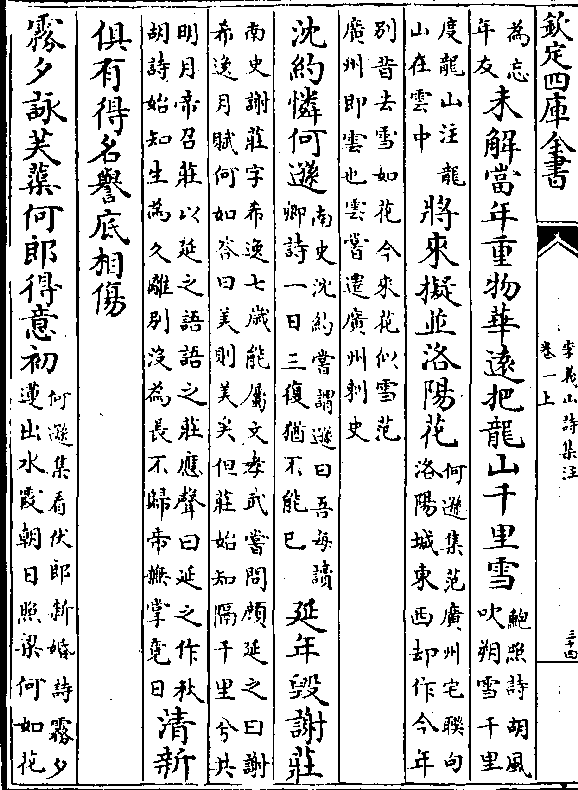 欽定四庫全書
李義山詩集注
卷一上
三十四
為忘
年友
未解當年重物華遠把龍山千里雪
鮑照詩胡風
吹朔雪千里
度龍山注龍
山在雲中
將來擬並洛陽花
何遜集范廣州宅聨句
洛陽城東西却作今年
别昔去雪如花今來花似雪范
廣州即雲也雲嘗遷廣州刺史
沈約憐何遜
南史沈約嘗謂遜曰吾每讀
卿詩一日三復猶不能已
延年毁謝莊
南史謝莊字希逸七歲能屬文孝武嘗問顔延之曰謝
希逸月賦何如答曰美則美矣但莊始知隔千里兮共
明月帝召莊以延之語語之莊應聲曰延之作秋
胡詩始知生為久離别没為長不歸帝撫掌竟日
清新
俱有得名譽底相傷
霧夕詠芙蕖何郎得意初
何遜集看伏郎新婚詩霧夕
蓮出水霞朝日照梁何如花